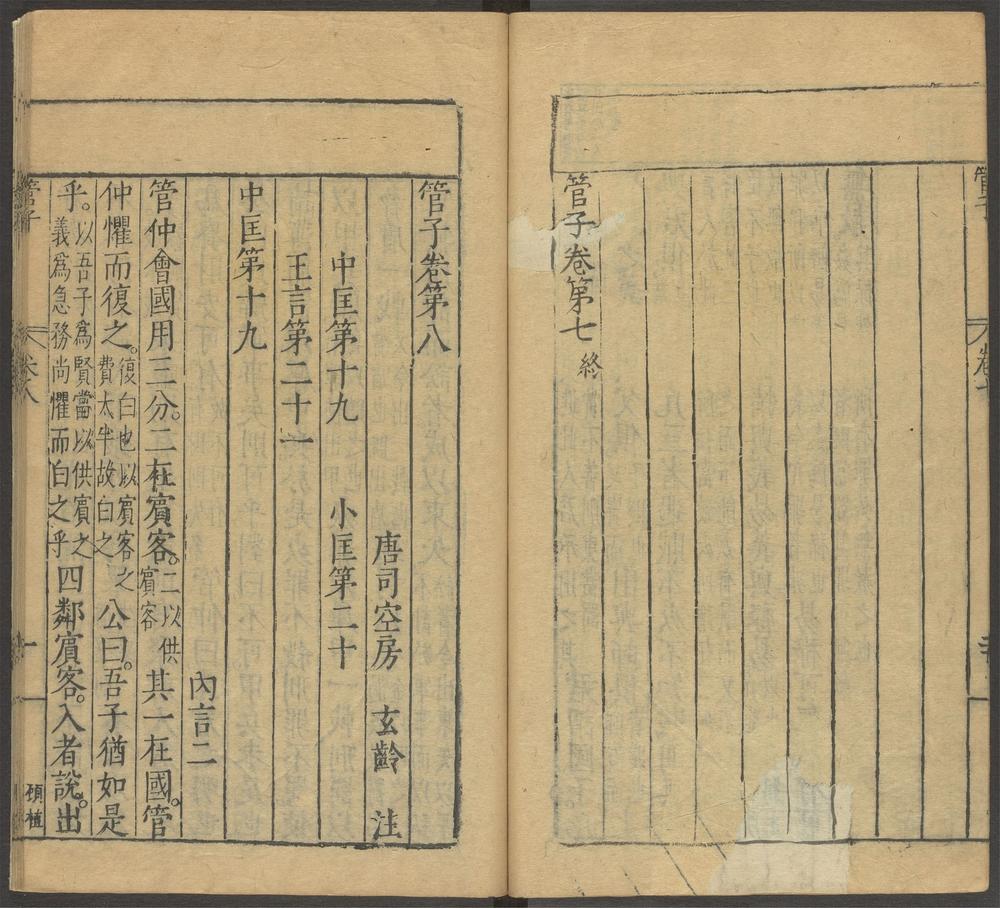 管子
卷七
管子卷第七 終
管子卷第八
唐司空房 玄齡 注
中匡第十九 小匡第二十
王言第二十一
中匡第十九
內言二
管仲會國用三分。二在賓客。二以供賓客 其一在國。管
仲懼而復之。復白也以賓客之費太半故白之 公曰。吾子猶如是
乎。以吾子爲賢當以供賓之義爲急務尚懼而白之乎 四鄰賓客。入者說。出
管子
卷八
一
顧植